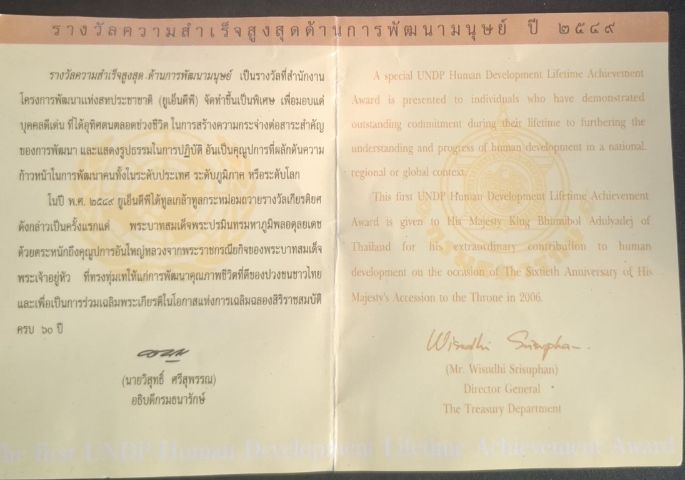 รางวัลความสำเร็จสูงสุดด้านการพัฒนามนุษย์ ปี ๒๕๔๙
รางวัลความสำเร็จสูงสุด ด้านการพัฒนามนุษย์ เป็นรางวัลที่สำนักงาน
โครงการพัฒนาแห่งสหประชาชาติ (ยูเอ็นดีพี) จัดทำขึ้นเป็นพิเศษ เพื่อมอบแด่
บุคคลดีเด่น ที่ได้อุทิศตนตลอดช่วงชีวิต ในการสร้างความกระจ่างต่อสาระสำคัญ
ของการพัฒนา และแสดงรูปธรรมในการปฏิบัติ อันเป็นคุณูปการที่ผลักดันความ
ก้าวหน้าในการพัฒนาคนทั้งในระดับประเทศ ระดับภูมิภาค หรือระดับโลก
ในปี พ.ศ. ๒๕๔๙ ยูเอ็นดีพีได้ทูลเกล้าทูลกระหม่อมถวายรางวัลเกียรติยศ
ดังกล่าวเป็นครั้งแรกแด่ พระบาทสมเด็จพระปรมินทรมหาภูมิพลอดุลยเดช
ด้วยตระหนักถึงคุณูปการอันใหญ่หลวงจากพระราชกรณียกิจของพระบาทสมเด็จ
พระเจ้าอยู่หัว ที่ทรงทุ่มเทให้แก่การพัฒนาคุณภาพชีวิตที่ดีของปวงชนชาวไทย
และเพื่อเป็นการร่วมเฉลิมพระเกียรติในโอกาสแห่งการเฉลิมฉลองสิริราชสมบัติ
ครบ ๖๐ ปี
(นายวิสุทธิ์ ศรีสุพรรณ)
อธิบดีกรมธนารักษ์
A special UNDP Human Development Lifetime Achievement
Award is presented to individuals who have demonstrated
outstanding commitment during their lifetime to furthering the
understanding and progress of human development in a national,
regional or global context.
This first UNDP Human Development Lifetime Achievement
Award is given to His Majesty King Bhumibol Adulyadej of
Thailand for his extraordinary contribution to human
development on the occasion of The Sixtieth Anniversary of His
Majesty's Accession to the Throne in 2006.
Wisudhi Srisuphan
(Mr. Wisudhi Srisuphan)
Director General
The Treasury Department
The first UNDP Human Development Lifetime Achievement Award